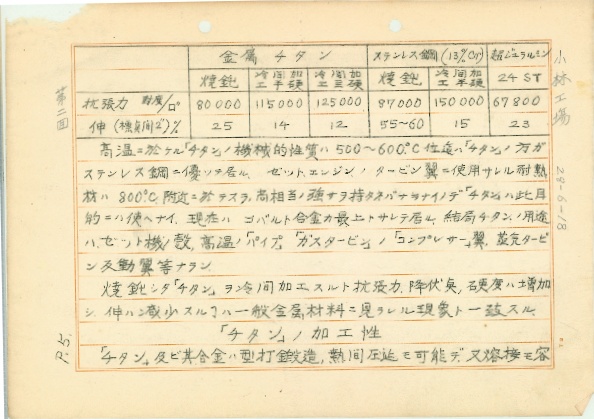 金属チタン ステンレス鋼(13%Cr) 超ジュラルミン
焼鈍 冷間加工半硬 冷間加工全硬 焼鈍 冷間加工硬 24ST
抗張力 封度/□" 80000 115000 125000 87000 150000 67800
伸(標点間2")% 25 14 12 55~60 15 23
高温ニ於ケル「チタン」ノ機械的性質ハ500~600°C位迄ハ「チタン」ノ方ガ
ステンレス鋼ニ優ツテ居ル、ゼットエンジン、タービン翼ニ使用サレル耐熱
材ハ800°C附近ニ於テスラ尚相当ノ強サヲ持タネバナラナイノデ「チタン」ハ此目
的ニハ使ヘナイ、現在ハコバルト合金ガ最上トサレテ居ル、結局チタンノ用途
ハ、ゼット機ノ殻、高温ノ「パイプ」「ガスタービン」ノ「コンプレサー」翼、蒸気タービ
ン反動翼等ナラン
焼鈍シタ「チタン」ヲ冷間加工スルト抗張力、降伏点、硬度ハ増加
シ、伸ハ減少スル事ハ一般金属材料ニ見ラレル現象ト一致スル、
「チタン」ノ加工性
「チタン」及ビ其合金ハ型打鍛造、熱間圧延モ可能デ、又溶接モ容
第二回
P.5.
小林工場
29-6-18